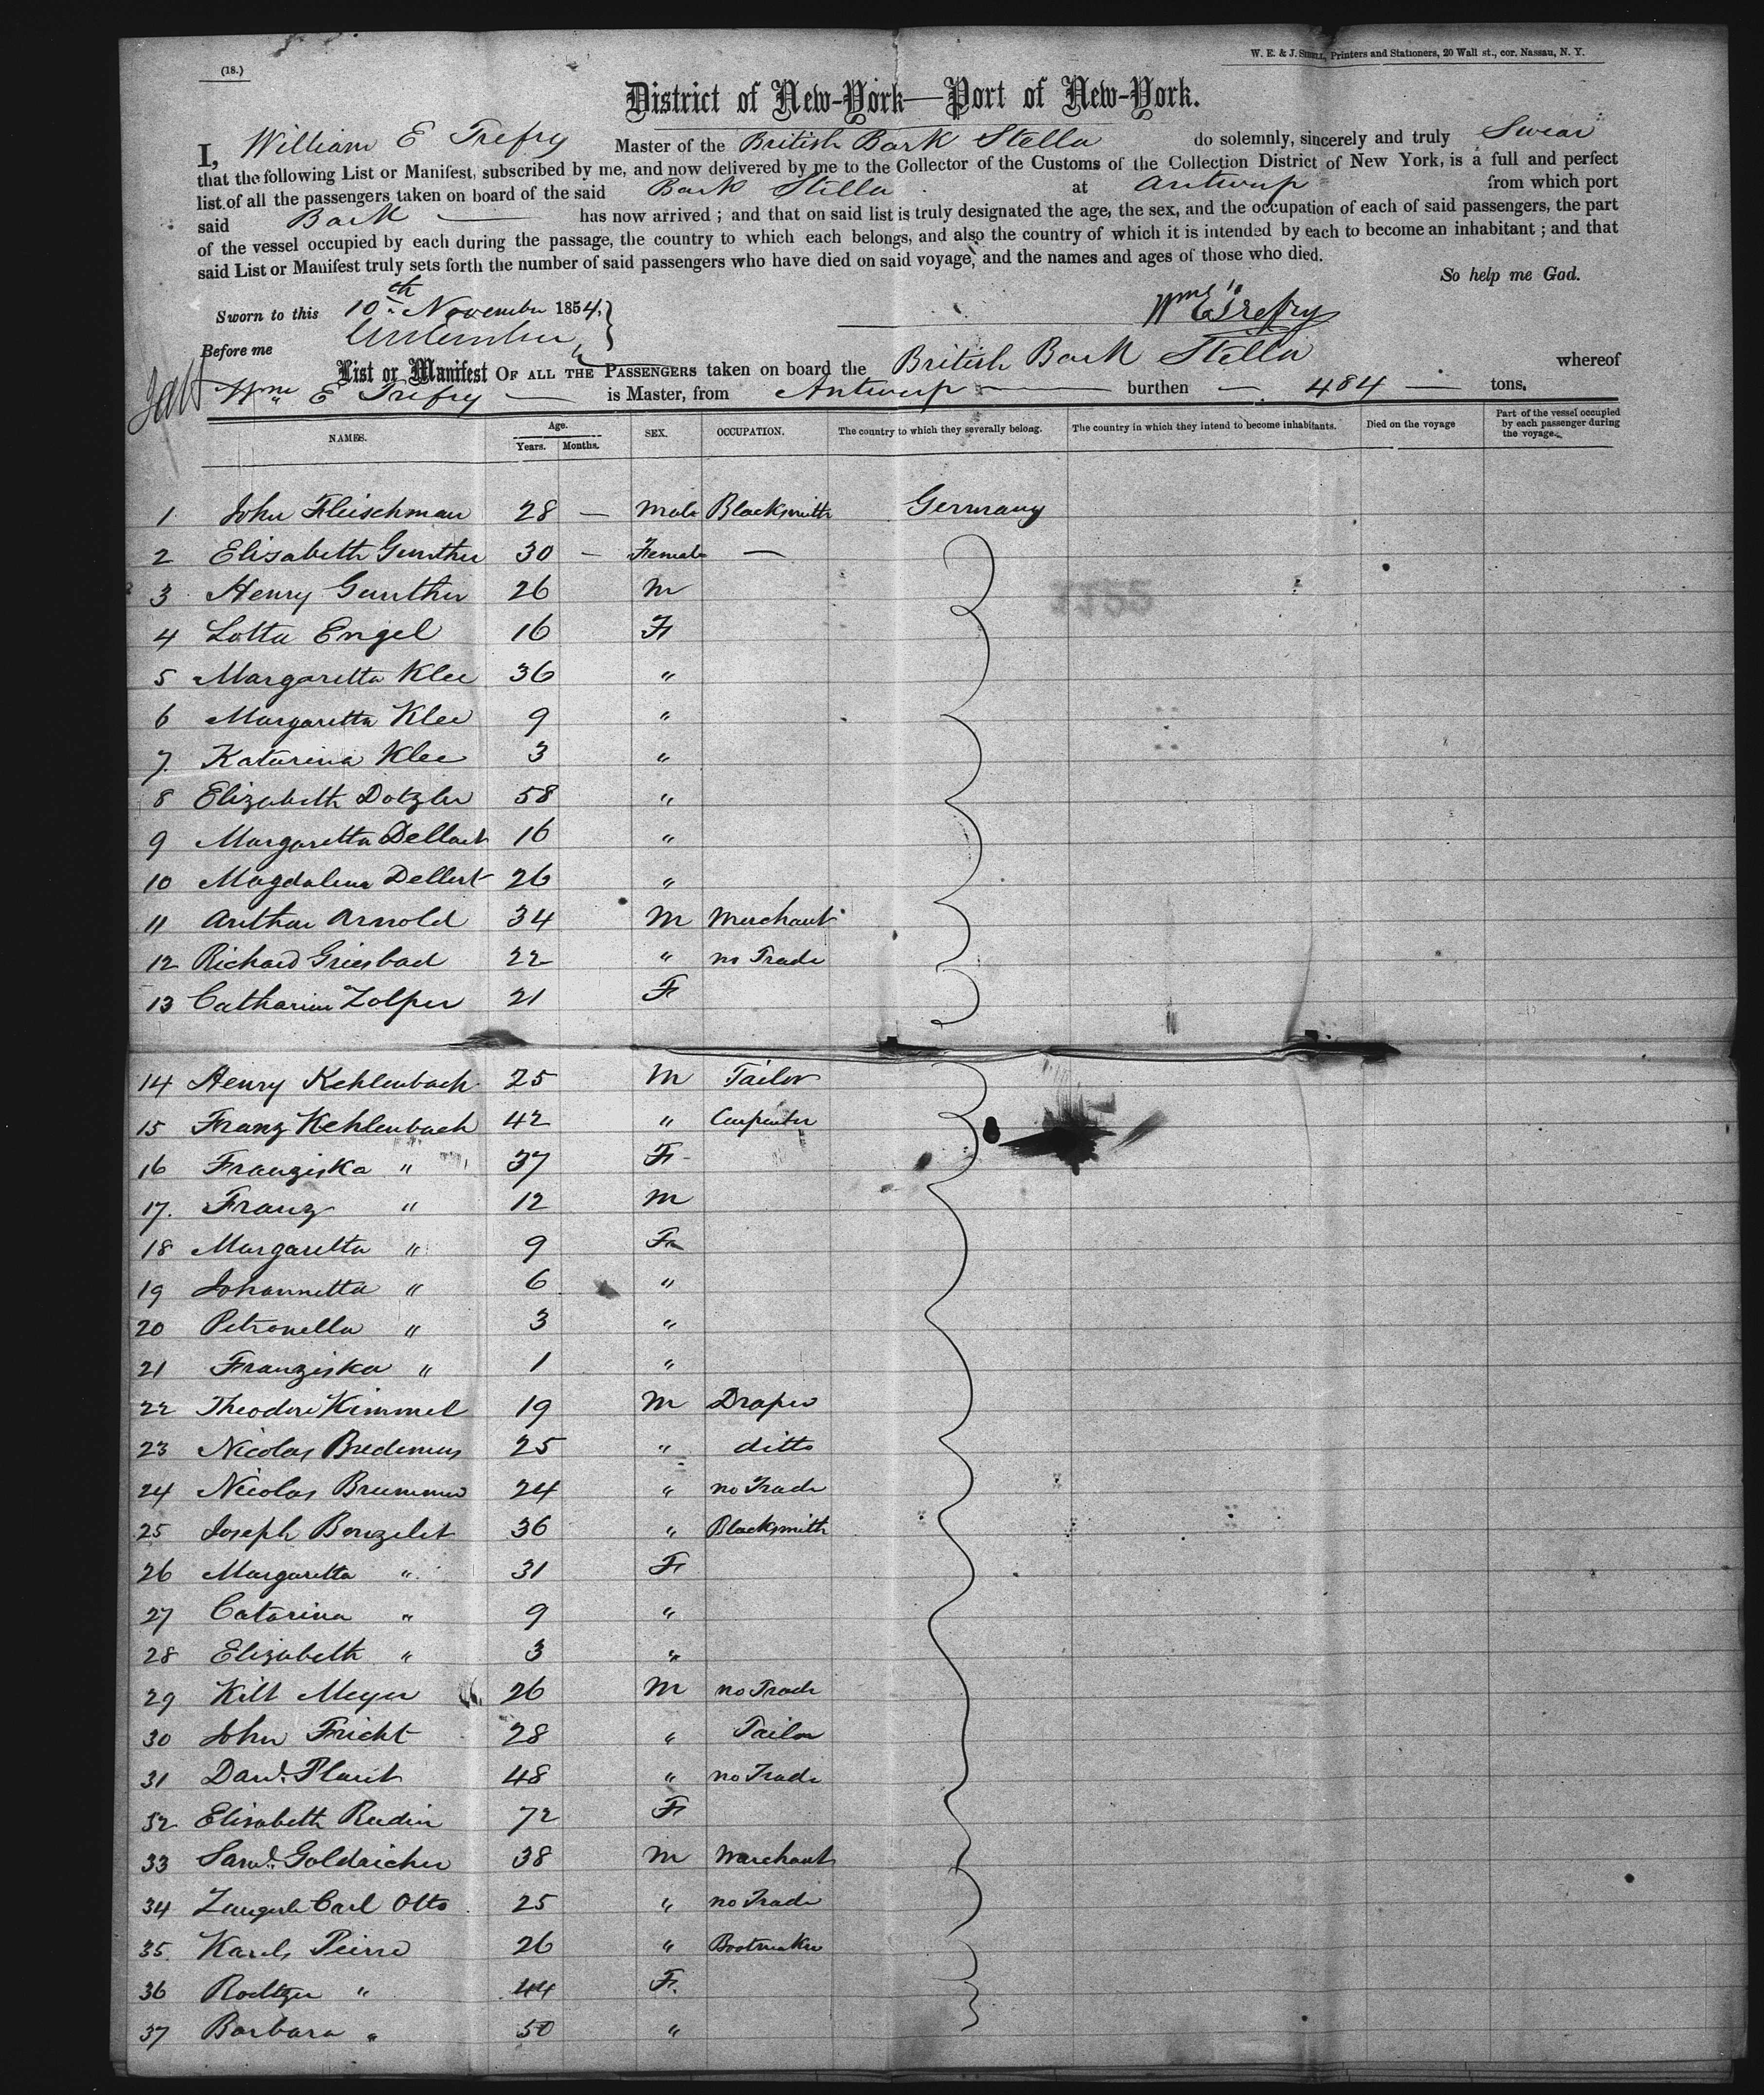 (18.)
W. E. & J. SIBELL, Printers and Stationers, 20 Wall st., cor. Nassau, N. Y.
District of New-York—Port of New-York.
I, William E Trefry Master of the British Bark Stella do solemnly, sincerely and truly Swear
that the following List or Manifest, subscribed by me, and now delivered by me to the Collector of the Customs of the Collection District of New York, is a full and perfect
list of all the passengers taken on board of the said Bark Stella at Antwerp from which port
said Bark has now arrived ; and that on said list is truly designated the age, the sex, and the occupation of each of said passengers, the part
of the vessel occupied by each during the passage, the country to which each belongs, and also the country of which it is intended by each to become an inhabitant ; and that
said List or Manifest truly sets forth the number of said passengers who have died on said voyage, and the names and ages of those who died.
So help me God.
Sworn to this 10th November 1854,
Wm E Trefry
Before me
List or Manifest OF ALL THE PASSENGERS taken on board the British Bark Stella whereof
Wm E Trefry is Master, from Antwerp burthen 484 tons.
NAMES. Age. Years. Months. SEX. OCCUPATION. The country to which they severally belong. The country in which they intend to become inhabitants. Died on the voyage Part of the vessel occupied by each passenger during the voyage.
1 John Fleischman 28 — Male Blacksmith Germany
2 Elisabeth Gunther 30 — Female —
3 Henry Gunther 26 M
4 Lotta Engel 16 F
5 Margaretta Klee 36 "
6 Margaretta Klee 9 "
7. Katarina Klee 3 "
8 Elizabeth Dotzler 58 "
9 Margaretta Dellart 16 "
10 Magdalena Dellert 26 "
11 Arnold 34 M Merchant
12 Richard Griesbad 22 " no Trade
13 Catharine Zolper 21 F
14 Henry Kehlenbach 25 M Tailor
15 Franz Kehlenbach 42 " Carpenter
16 Franziska " 37 F
17. Franz " 12 M
18 Margaretta " 9 F
19 Johannetta " 6 "
20 Petronella " 3 "
21 Franziska " 1 "
22 Theodore Kimmel 19 M Draper
23 Nicolas Bredimus 25 " ditto
24 Nicolas Brummer 24 " no Trade
25 Joseph Bonzelet 36 " Blacksmith
26 Margaretta " 31 F
27 Catarina " 9 "
28 Elizabeth " 3 "
29 Kilt Meyer 26 M no Trade
30 John Fricht 28 " Tailor
31 48 " no Trade
32 Elisabeth Rudin 72 F
33 Saml. Goldaicher 38 M Merchant
34 Carl Otto 25 " no Trade
35. Pierre 26 " Bootmaker
36 " 44 F.
37 Barbara " 50 "